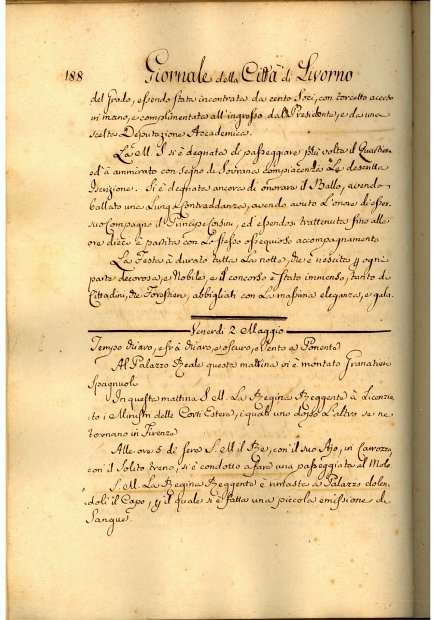 188 Giornale della Città di Livorno
del Grado, essendo stata incontrata da cento Soci, con torcetto acceso
in mano, e complimentata all'ingresso dal Presidente, e da una
scelta Deputazione Accademica.
La M. S. si è degnata di passeggiare più volte il Quartiere
ed à ammirato con segno di Sovrana compiacenza La descritta
Iscrizione. Si è degnata ancora di onorare il Ballo, avendo
ballato una Lunga Contraddanza, avendo avuto L'onore di esser
suo Compagno il Principe Corsini, ed essendosi trattenuta fino alle
ore dieci è partita con Lo stesso ossequioso accompagnamento
La Festa à durato tutta La notte, che è riescita p ogni
parte decorosa, e Nobile, e il concorso è stato immenso, tanto di
Cittadini, che Forestieri, abbigliati con La massima eleganza, e gala.
Venerdì 2 Maggio
Tempo chiaro, e frà chiaro, e oscuro, e vento a Ponente
Al Palazzo Reale questa mattina vi è montato Granatieri
Spagnuoli
In questa mattina S. M. La Regina Reggente à Licenzia-
to i Ministri delle Corti Estere, i quali uno dopo L'altro se ne
tornano in Firenze
Alle ore 5 di sera S. M. il Re, con il suo Ajo, in Carrozza
con il Solito treno, si è condotto a fare una passeggiata al Molo
S. M. La Regina Reggente è rimasta a Palazzo dolen-
doli il Capo, p il quale si è fatta una piccola emissione di
Sangue.